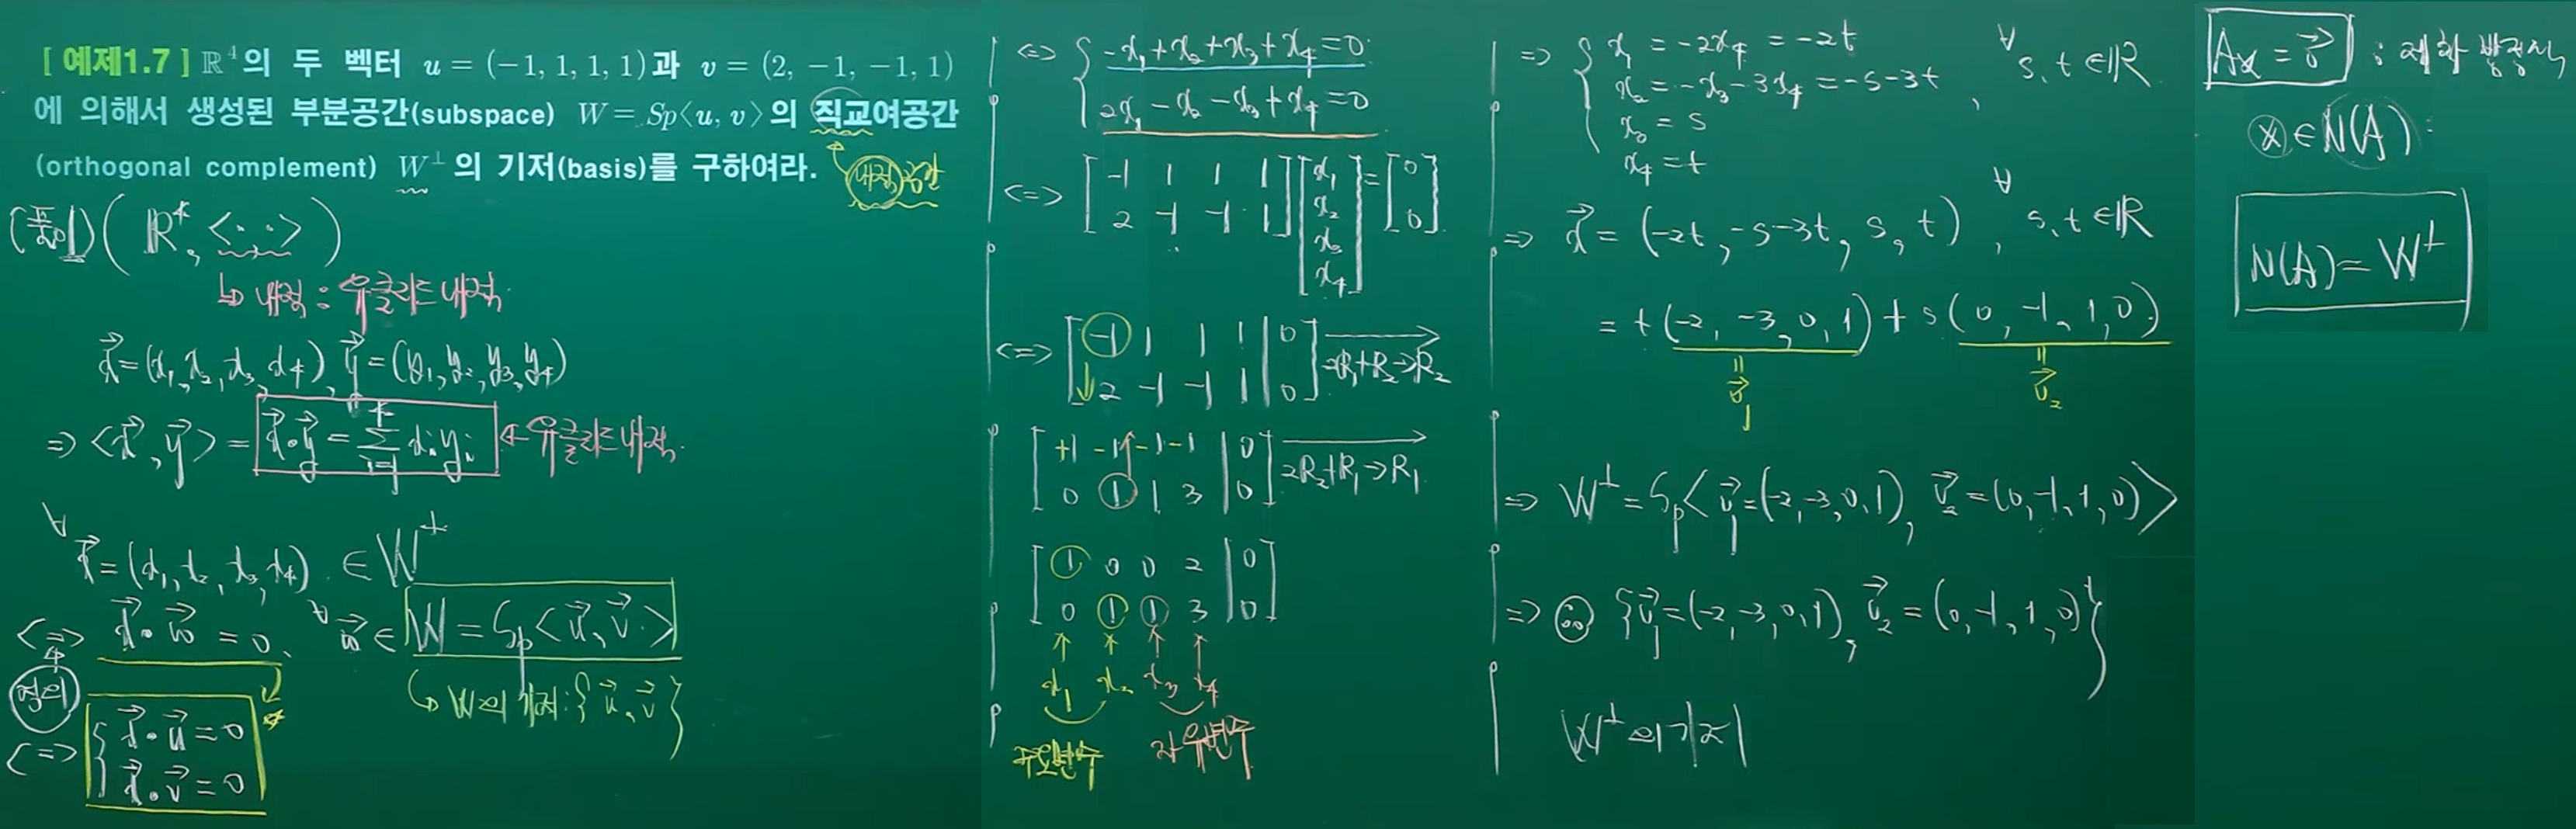 [ 예제1.7 ] ℝ⁴의 두 벡터 u = (-1, 1, 1, 1)과 v = (2, -1, -1, 1)
에 의해서 생성된 부분공간(subspace) W = Sp⟨u, v⟩의 직교여공간
(orthogonal complement) W⊥의 기저(basis)를 구하여라.
내적공간
(풀이) (ℝ⁴, <·,·>)
↳ 내적 : 유클리드 내적
x⃗=(x₁, x₂, x₃, x₄), y⃗=(y₁, y₂, y₃, y₄)
⇒ <x⃗, y⃗> = x⃗•y⃗ = Σ_{i=1}^{4} xᵢyᵢ ← 유클리드 내적
∀x⃗=(x₁, x₂, x₃, x₄) ∈ W⊥
<=> x⃗•w⃗ = 0, ∀w⃗ ∈ W = Sp<u⃗, v⃗>
정의
↳ W의 기저:{u⃗, v⃗}
<=> { x⃗•u⃗ = 0
x⃗•v⃗ = 0
<=> { -x₁+x₂+x₃+x₄=0
2x₁-x₂-x₃+x₄=0
<=> [-1 1 1 1] [x₁ = [0
[2 -1 -1 1] x₂ 0]
x₃
x₄]
<=> [-1 1 1 1 | 0] 2R₁+R₂→R₂
[2 -1 -1 1 | 0]
[+1 -1 -1 -1 | 0] 2R₂+R₁→R₁
[0 1 1 3 | 0]
[1 0 0 2 | 0]
[0 1 1 3 | 0]
↑ ↑ ↑ ↑
x₁ x₂ x₃ x₄
주요변수 자유변수
=> { x₁ = -2x₄ = -2t
x₂ = -x₃-3x₄ = -s-3t , ∀s, t ∈ℝ
x₃ = s
x₄ = t
=> x⃗ = (-2t, -s-3t, s, t) , ∀s, t ∈ℝ
= t(-2, -3, 0, 1) + s(0, -1, 1, 0)
= v⃗₁ = v⃗₂
=> W⊥ = Sp<v⃗₁=(-2,-3,0,1), v⃗₂=(0,-1,1,0)>
=> ∴ {v⃗₁=(-2,-3,0,1), v⃗₂=(0,-1,1,0)}
W⊥의 기저
Ax = 0⃗ : 제차 방정식
x∈N(A) :
N(A) = W⊥